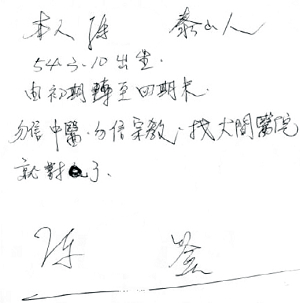 本人陳 泰山人
54.3.10出生.
由初期轉至四期末.
勿信中醫.勿信宗教.找大間醫院
就對了.
陳